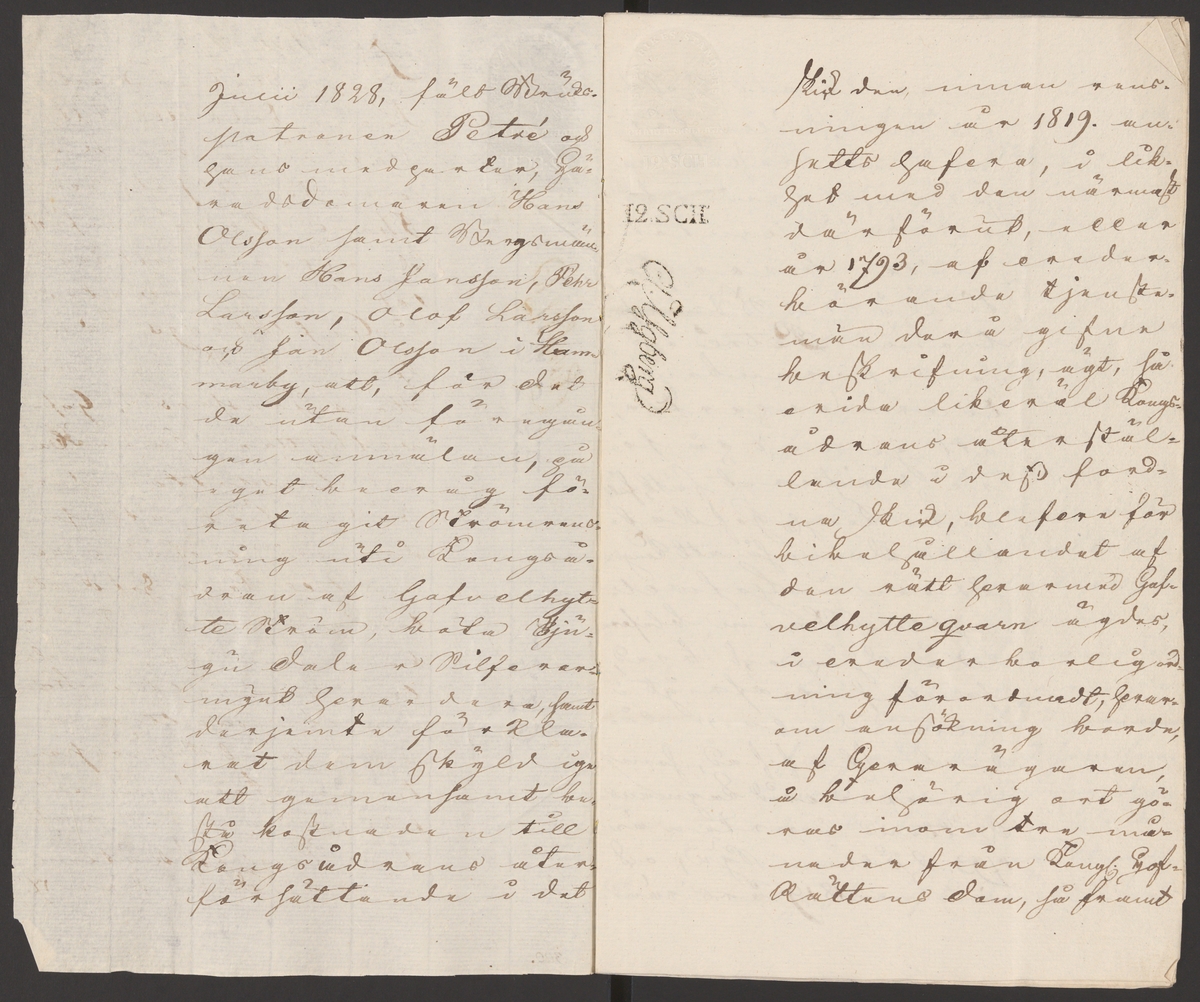 Junii 1828, fält Bruks-
patronen Petré och
hans medparter, Hä-
radsdomaren Hans
Olsson samt Bergsmän-
nen Hans Jansson, Pehr
Larsson, Olof Larsson
och Jan Olsson i Ham-
marby, att, för det
de utan föregån-
gen anmälan, på
eget bevåg fö-
retagit Strömrens-
ning uti Kongså-
dran af Gafvelhyt-
te Ström, böta Tju-
gu Daler Silfver-
mynt hvardera, samt
derjemte förkla-
rat dem skyldige
att gemensamt be-
stå kostnaden till
Kongsådrans åter-
försättande i det
Skick den, innan rens-
ningen år 1819. an-
setts hafva, i lik-
het med den närmast
därförut, eller
år 1793, af veder-
börande tjenste-
män derå gifne
beskrifning, ägt, så
vida likväl Kongs-
ådrans återstäl-
lande i dess ford-
na Skick, blefve för
bibehållandet af
den rätt hvarmed Gaf-
velhytte qvarn ägdes,
i vederborlig ord-
ning förordnadt, hvar-
om ansökning borde,
af Qvarnägaren,
å behörig ort gö-
ras inom tre må-
nader från Kongl: Hof-
Rättens Dom, så framt
12.SCH.